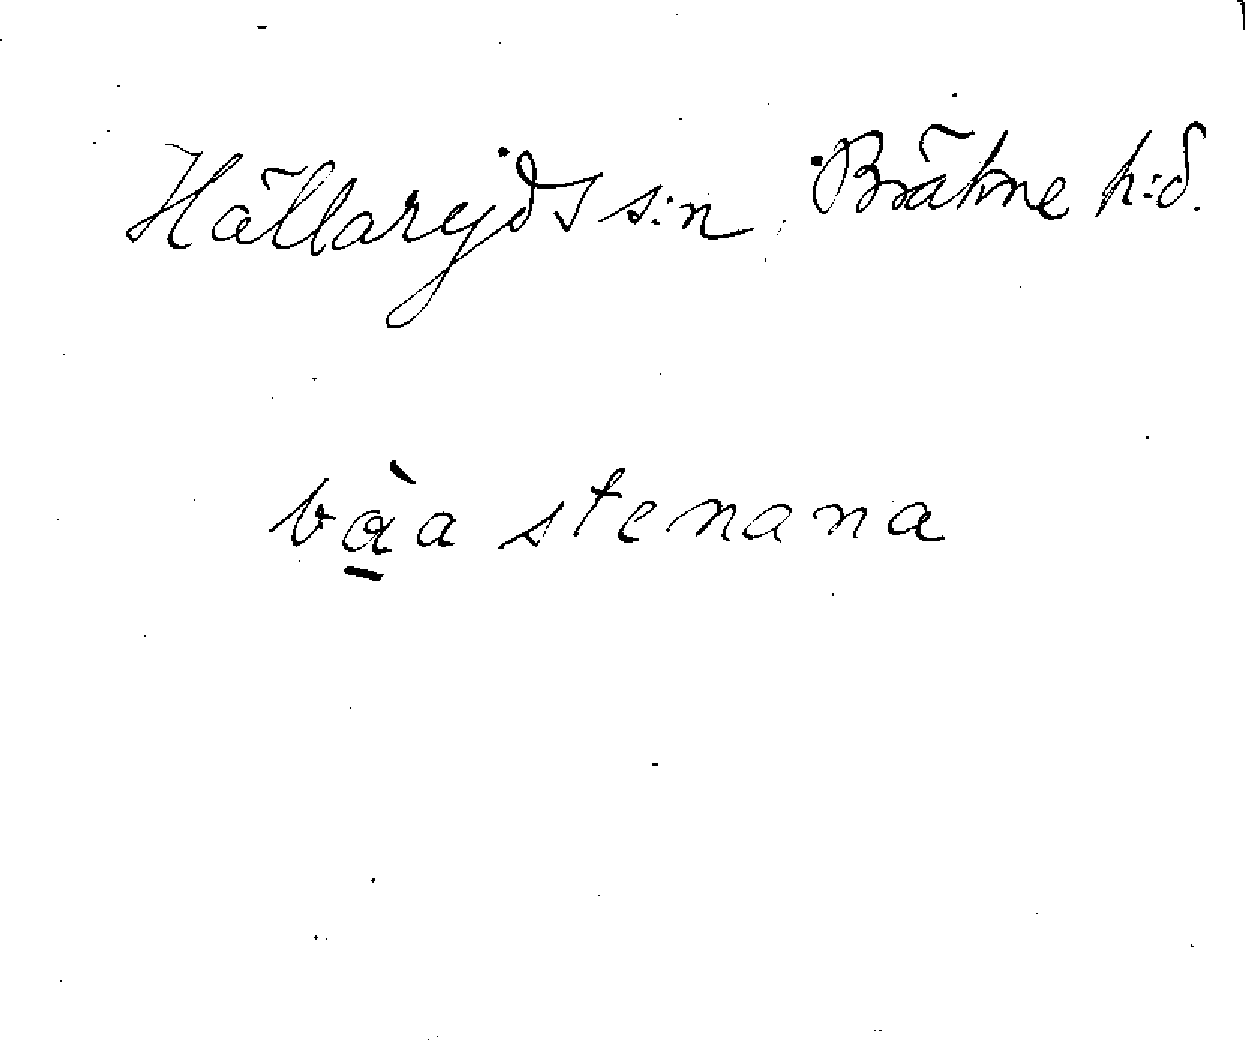 Hällaryds s:n, Bräkne h:d.
và̱a stenana